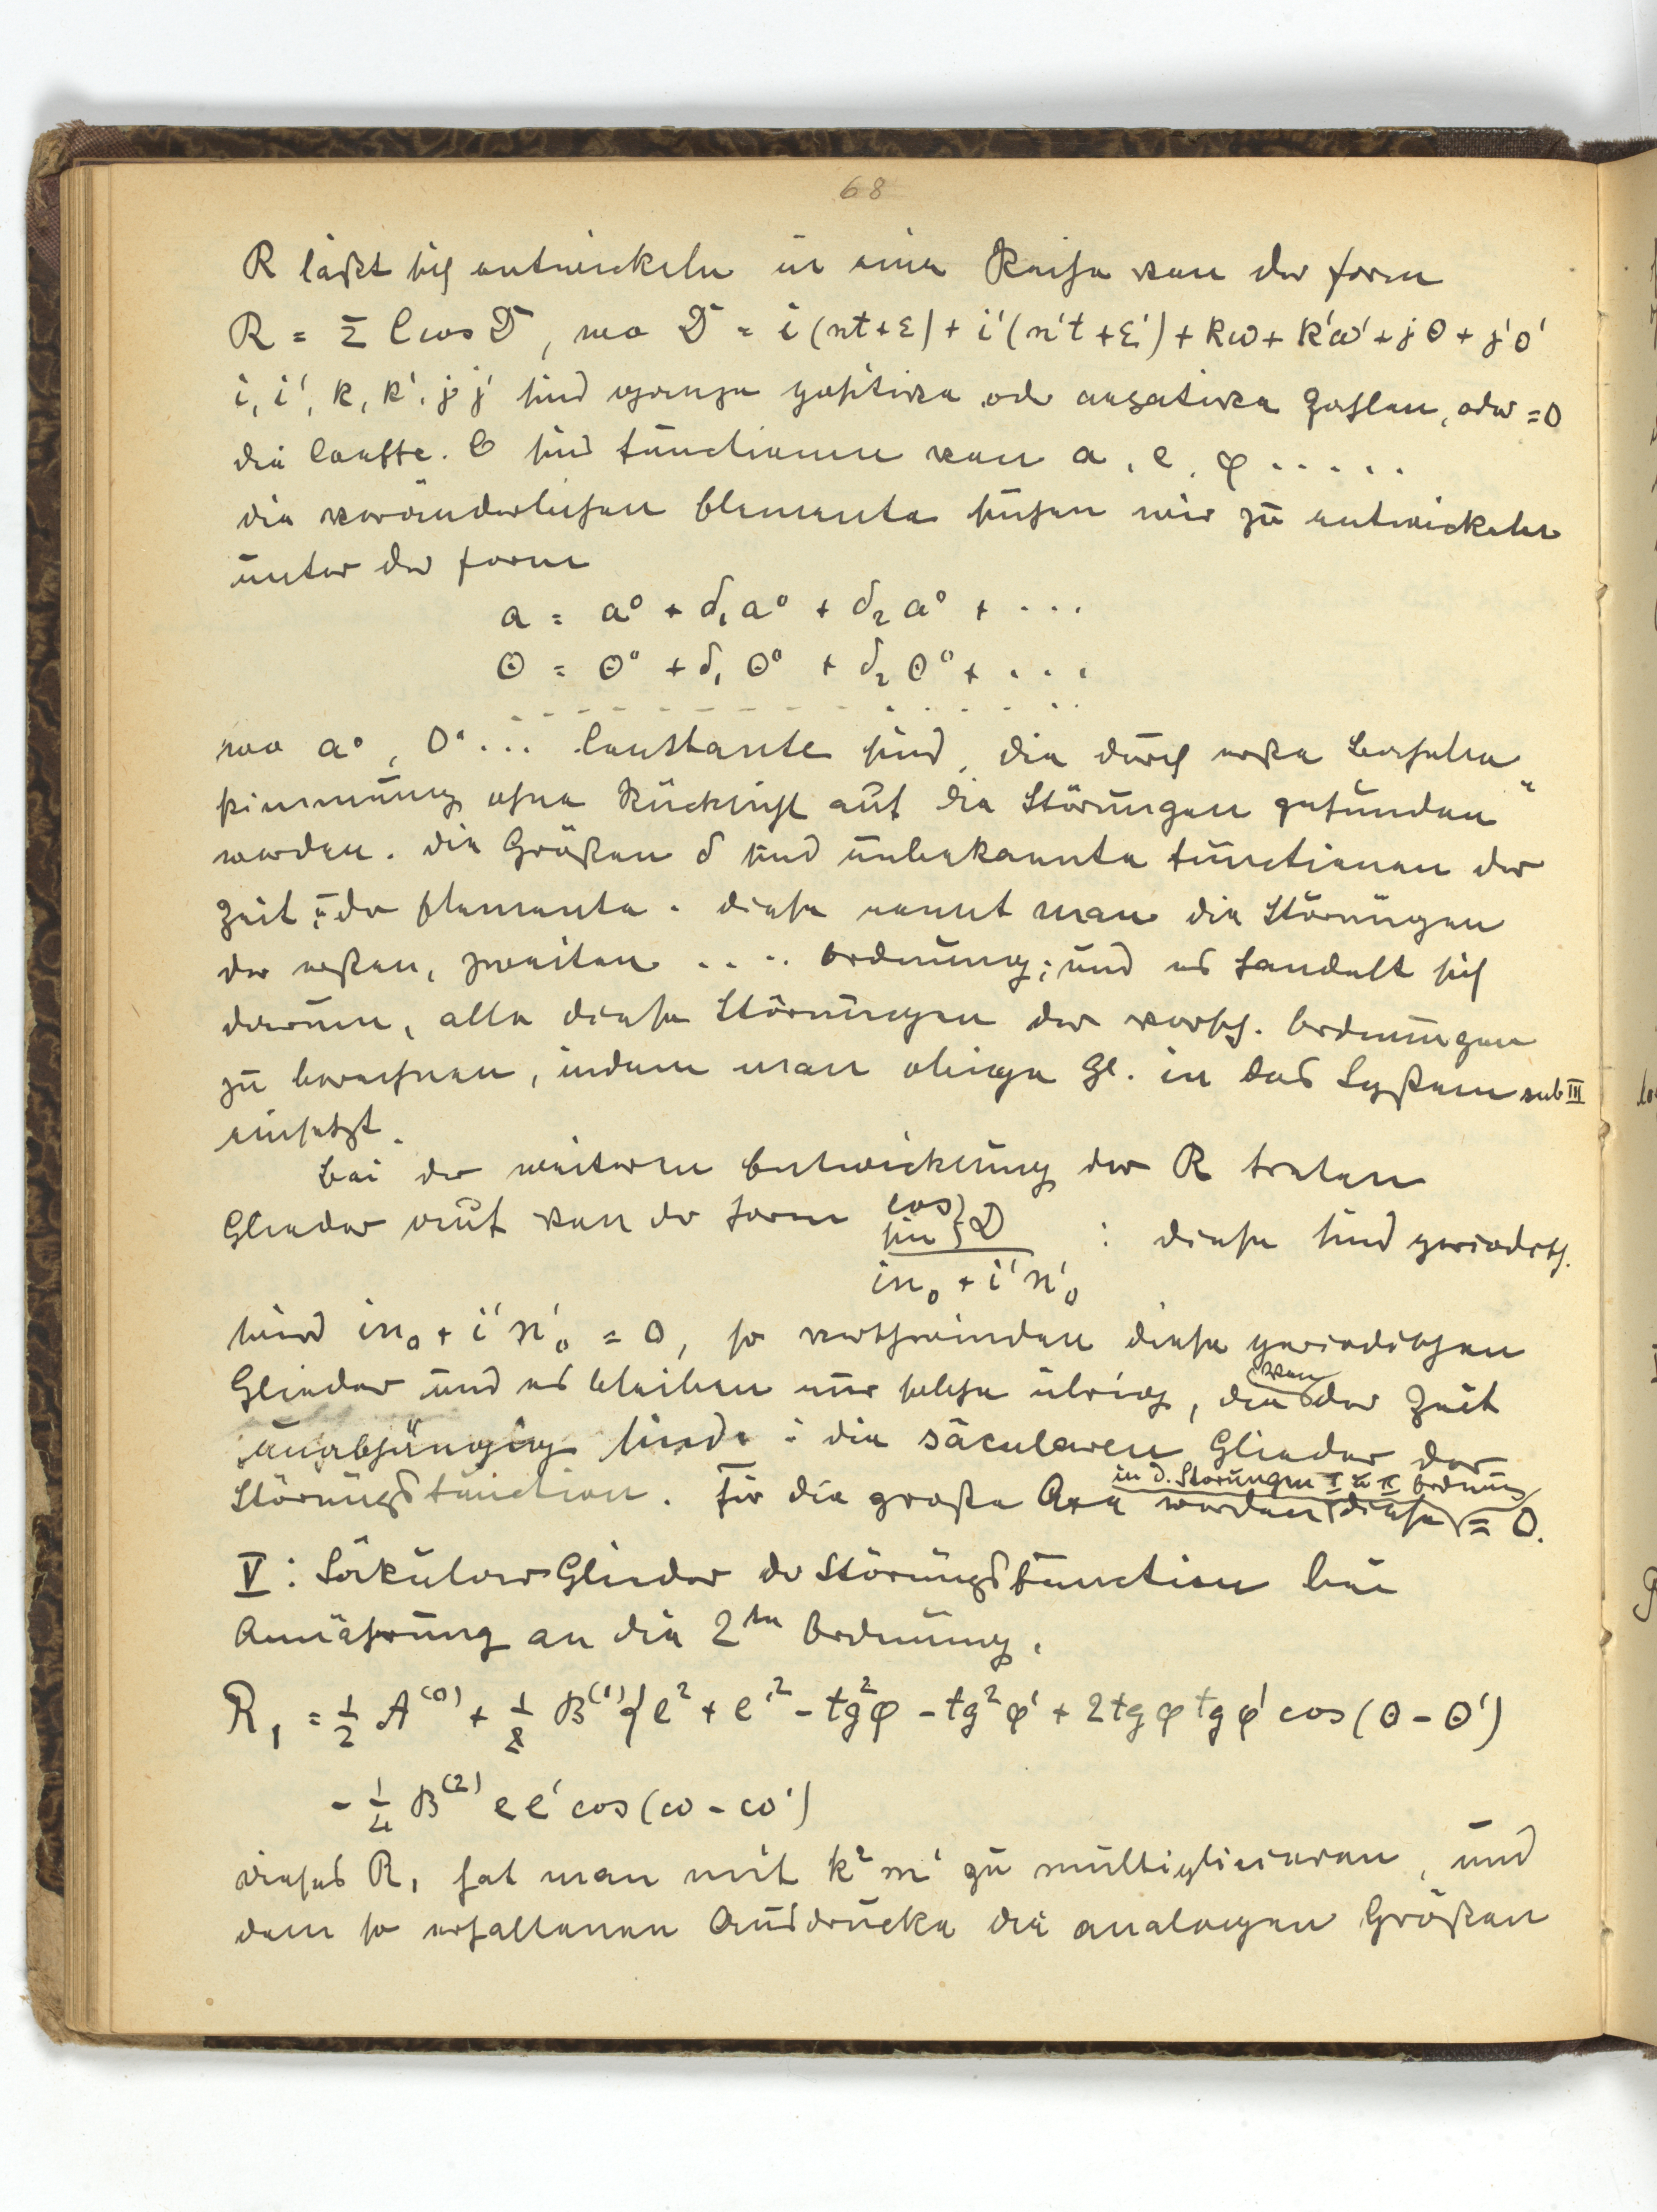 68
R läßt sich entwickeln in eine Reihe von der Form
R = Σ C cos D, wo D = i(nt+ε) + i'(n't+ε') + kω + k'ω' + jθ + j'θ'
i, i', k, k', j, j' sind ganze positive od. negative Zahlen, oder = 0
die Coeffte. C sind Functionen von a, e, φ .....
die veränderlichen Elemente suchen wir zu entwickeln
unter der Form
a = a⁰ + δ₁a⁰ + δ₂a⁰ + ...
θ = θ⁰ + δ₁θ⁰ + δ₂θ⁰ + ...
wo a⁰, θ⁰... Constante sind, die durch erste Bahnbe„
stimmung ohne Rücksicht auf die Störungen gefunden
werden. Die Größen δ sind unbekannte Functionen der
Zeit u. der Elemente. Diese nennt man die Störungen
der ersten, zweiten .... Ordnung; und es handelt sich
darum, alle diese Störungen der versch. Ordnungen
zu berechnen, indem man obige Gl. in das System sub III
einsetzt.
Bei der weiteren Entwicklung der R treten
Glieder auf von der Form cos
sin } D
in₀ + i'n'₀ : diese sind periodisch.
Wird in₀ + i'n'₀ = 0, so verschwinden diese periodischen
Glieder und es bleiben nur solche übrig, die von der Zeit
unabhängig sind: die säcularen Glieder der
Störungsfunction. Für die große Axe werden diese in d. Störungen I u. II Ordnung = 0.
V: Säkular Glieder der Störungsfunction bei
Annäherung an die 2ten Ordnung.
R₁ = 1/2 A⁽⁰⁾ + 1/8 B⁽¹⁾{e² + e'² - tg²φ - tg²φ' + 2tgφ tgφ' cos(θ - θ')
- 1/4 B⁽²⁾ ee' cos(ω - ω')
dieses R₁ hat man mit k²m' zu multiplicieren, und
dem so erhaltenen Ausdrucke die analogen Größen